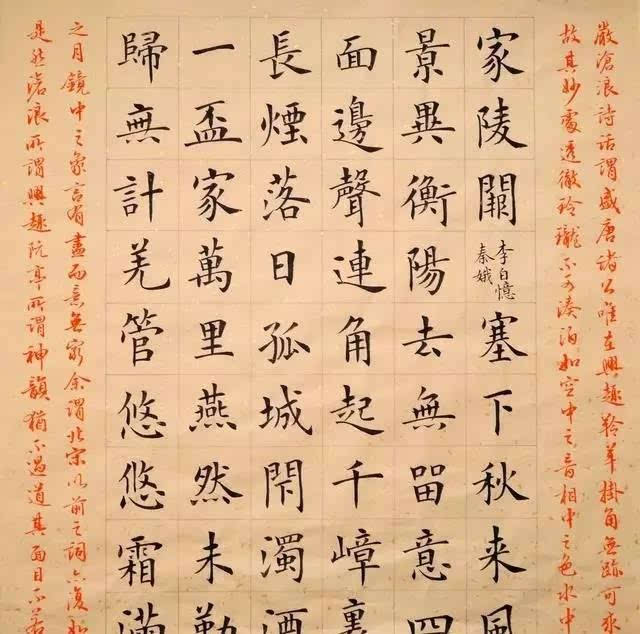 嚴滄浪詩話謂盛唐諸公唯在興趣羚羊掛角無跡可求
故其妙處透徹玲瓏不可湊泊如空中之音相中之色水中
家陵闕
李白憶
秦娥
塞下秋來風
景異衡陽去無留意四
面邊聲連角起千嶂裏
長煙落日孤城閇濁酒
一盃家萬里燕然未勒
歸無計羌管悠悠霜滿
之月鏡中之象言有盡而意無窮余謂北宋以前之詞亦復如
是然滄浪所謂興趣阮亭所謂神韻猶不過道其面目不若